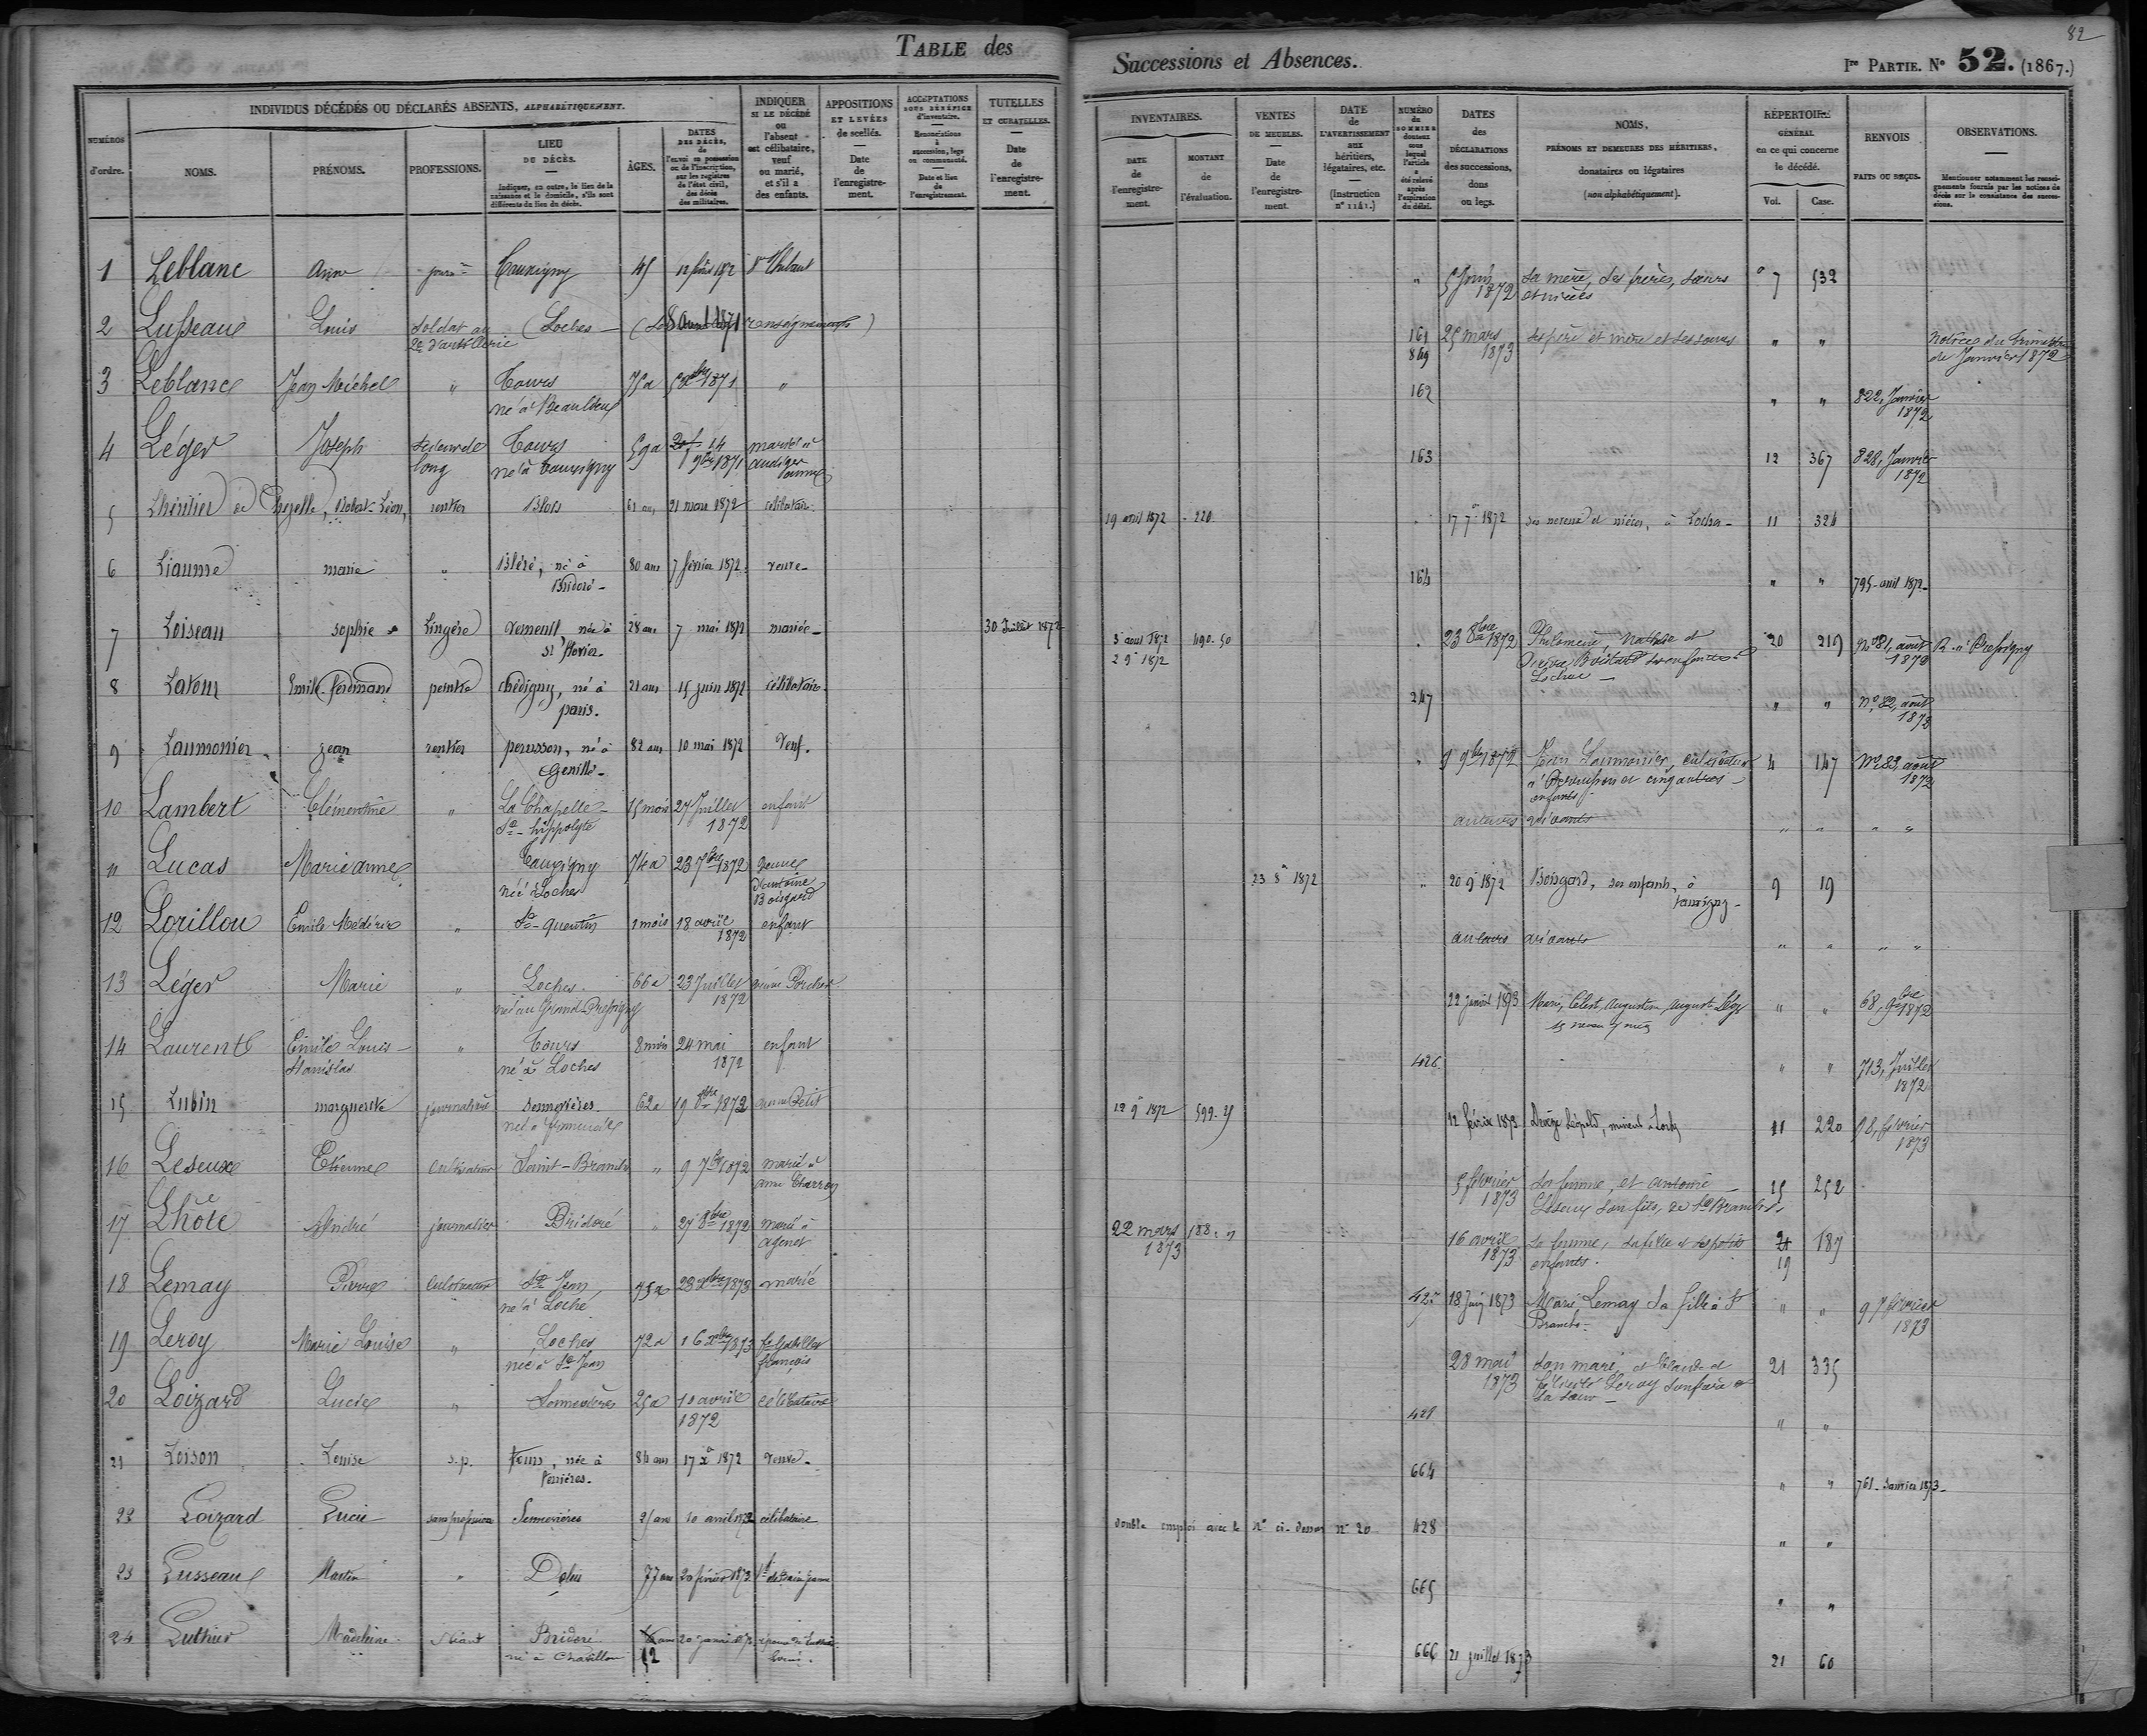 82
TABLE des Successions et Absences.
Ire PARTIE. No 52. (1867.)
NUMÉROS d'ordre.
INDIVIDUS DÉCÉDÉS OU DÉCLARÉS ABSENTS, ALPHABÉTIQUEMENT.
NOMS.
PRÉNOMS.
PROFESSIONS.
LIEU DU DÉCÈS.
Indiquer, en outre, le lieu de la naissance et le domicile, s'ils sont différents du lieu du décès.
ÂGES.
DATES DES DÉCÈS, de l'envoi en possession ou de l'inscription, sur les registres de l'état civil, des décès des militaires.
INDIQUER SI LE DÉCÉDÉ ou l'absent est célibataire, veuf ou marié, et s'il a des enfants.
APPOSITIONS ET LEVÉES de scellés. Date de l'enregistrement.
ACCEPTATIONS SOUS BÉNÉFICE d'inventaire. Renonciations à succession, legs ou communauté. Date et lieu de l'enregistrement.
TUTELLES ET CURATELLES. Date de l'enregistrement.
INVENTAIRES. DATE de l'enregistrement. MONTANT de l'évaluation.
VENTES DE MEUBLES. Date de l'enregistrement.
DATE de L'AVERTISSEMENT aux héritiers, légataires, etc. (Instruction n° 1141.)
NUMÉRO du SOMMIER douteux sous lequel l'article a été relevé après l'expiration du délai.
DATES des DÉCLARATIONS des successions, dons ou legs.
NOMS, PRÉNOMS ET DEMEURES DES HÉRITIERS, donataires ou légataires (non alphabétiquement).
RÉPERTOIRE GÉNÉRAL en ce qui concerne le décédé. Vol. Case.
RENVOIS FAITS OU REÇUS.
OBSERVATIONS.
Mentionner notamment les renseignements fournis par les notices de décès sur la consistance des successions.
1 Leblanc Anne Tauxigny 45 Thibault " 5 Juin 1872 Sa mère, ses frères, sœurs et nièces 7 532
2 Lusseau Louis soldat au 2e d'artillerie Loches renseignements 161 869 25 mars 1873 ses père et mère et ses sœurs " " notice du trimestre de Janvier 1872
3 Leblanc Jean Michel " Tours né à Beaulieu 75a 5 Xbre 1871 " 162 " " 822, Janvier 1872
4 Léger Joseph scieur de long Tours né à Tauxigny 59a 14 9bre 1871 marié à 163 12 367 828, Janvier 1872
5 Lhéritier de Chezelle, Robert-Léon, rentier Blois 61 ans 21 mars 1872 célibataire. 19 avril 1872 - 220 17 7e 1872 ses neveux et nièces, à Loches - 11 324
6 Liaume marie " Bléré, né à Bridoré - 80 ans 7 février 1872 veuve - 164 " " 795 - avril 1872 -
7 Loiseau sophie Lingère verneuil née à St flovier - 28 ans 7 mai 1872 mariée - 30 Juillet 1872 3 aout 1872 490.50 23 8bre 1872 Philomène, Mathilde et Boutard ses enfants à Loches - 20 219 n° 81, août 1872 R. à Pressigny
8 Latour Emile-ferdinand peintre chédigny, né à paris. 21 ans 15 juin 1872 célibataire. 247 " " n° 82, août 1873
9 Laumonier jean rentier perusson, né à Genillé - 82 ans 10 mai 1872 Veuf. " 9 9bre 1872 Jean Laumonier, cultivateur à Perrusson et cinq autres enfants - 4 147 n° 83, août 1872
10 Lambert Clémentine " La Chapelle St-hippolyte 15 mois 27 Juillet 1872 enfant " " " "
11 Lucas Marie anne Tauxigny née à Loches 74a 23 7bre 1872 veuve d'antoine Boisgard 23 8e 1872 " 20 9e 1872 Boisgard, ses enfants, à tauxigny - 9 19
12 Lorillou Emile Médéric " St-Quentin 1 mois 18 avril 1872 enfant " " " "
13 Léger Marie " Loches. née au Grand-Pressigny 66a 23 Juillet 1872 veuve Porcher 22 janvier 1873 " " 68, 9bre 1872
14 Laurent Emile Louis-Stanislas " Tours né à Loches 8 mois 24 mai 1872 enfant 426 " " 713, Juillet 1872
15 Lubin marguerite journalière sennevières 62a 19 8bre 1872 veuve Petit 12 9e 1872 599.25 12 février 1873 11 220 98, février 1873
16 Leseux Etienne cultivateur Saint-Branchs " 9 7bre 1872 marié à anne Charron 5 février 1873 Sa femme et antoine Leseux son fils, de St Branchs 15 252
17 Lhôte André journalier Bridoré " 27 8bre 1872 marié à agenet 22 mars 1873 188 " 16 avril 1873 Sa femme, sa fille et ses petits enfants. 19 187
18 Lemay Pierre cultivateur St Jean, né à Loché 75a 23 Xbre 1873 marié 427 18 Juin 1873 Marie Lemay sa fille à St Branchs - " " 97 février 1873
19 Leroy Marie Louise " Loches née à St Jean 72a 16 Xbre 1873 françois 28 mai 1873 Son mari, et Leroy son frère et sa sœur - 21 335
20 Loizard Lucie " Sennevières 25a 10 avril 1872 célibataire 428 " "
21 Loison Louise s.p. tours, née à ferrières. 84 ans 17 Xe 1872 veuve - 664 " " 761 - Janvier 1873 -
22 Loizard Lucie sans profession Sennevières 25 ans 10 avril 1872 célibataire double emploi avec le N° ci-dessus n° 20 428 " "
23 Lusseau Martin " Dolus 77 ans 20 février 1873 665 " "
24 Luthier Madeleine Bridoré né à Chatillon 52 666 21 juillet 1873 21 60